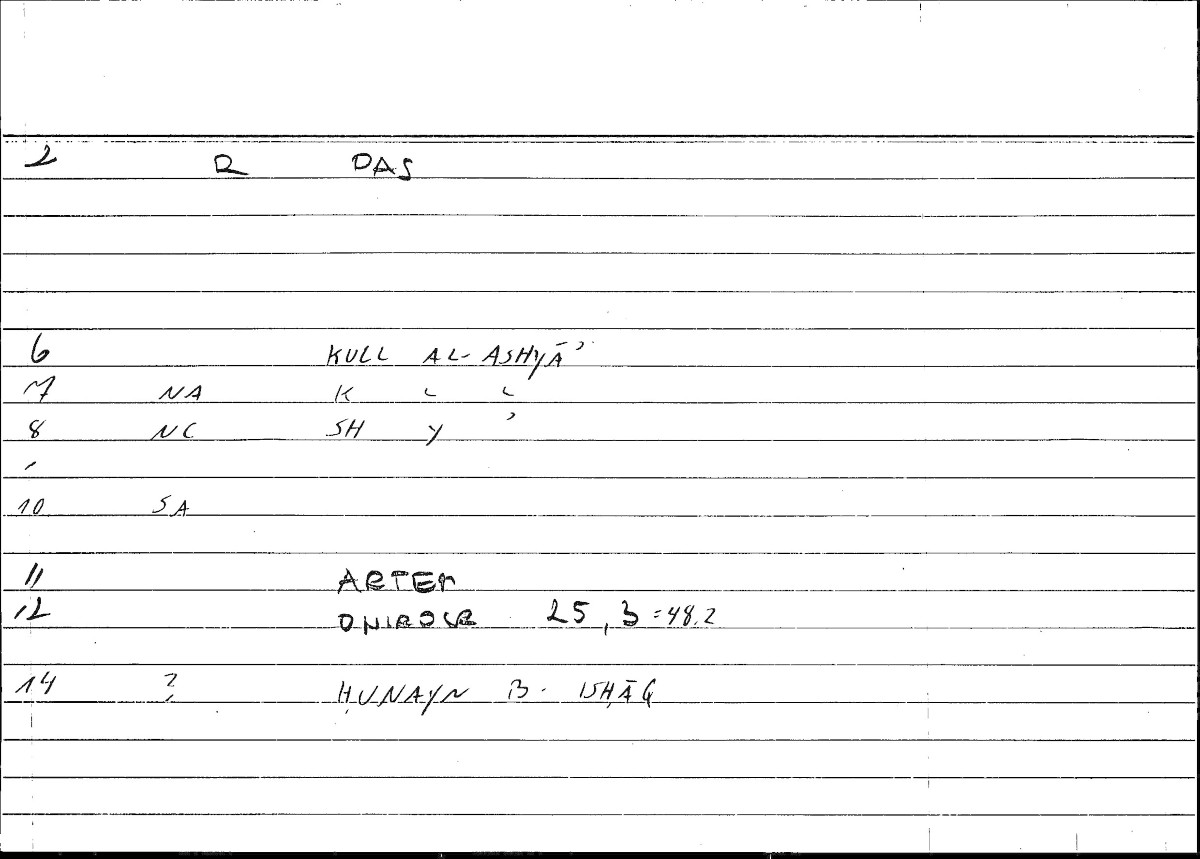 2 R DAS
6 KULL AL-ASHYĀʾ
7 NA K ʿ ʿ
8 NC SH Y ʾ
10 SA
11 ARTEM
12 ONIROCR 25,3=48.2
14 ? ḤUNAYN B. ISḤĀQ